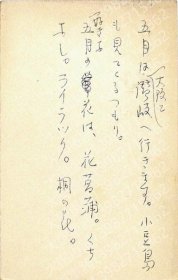 五月は讃岐へ行きます。小豆島
(大阪と
も見てくるつもり。
夢子
五月の花は、花菖蒲。くち
なし。ライラック。桐の花。